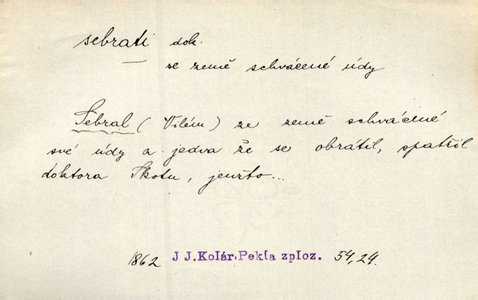 sebrati dok.
se země schvácené údy
Sebral (Vilém) ze země schvácené
své údy a jedva že se obrátil, spatřil
doktora Škotu, jenžto...
1862 J J. Kolár. Pekla zploz. 54,24.